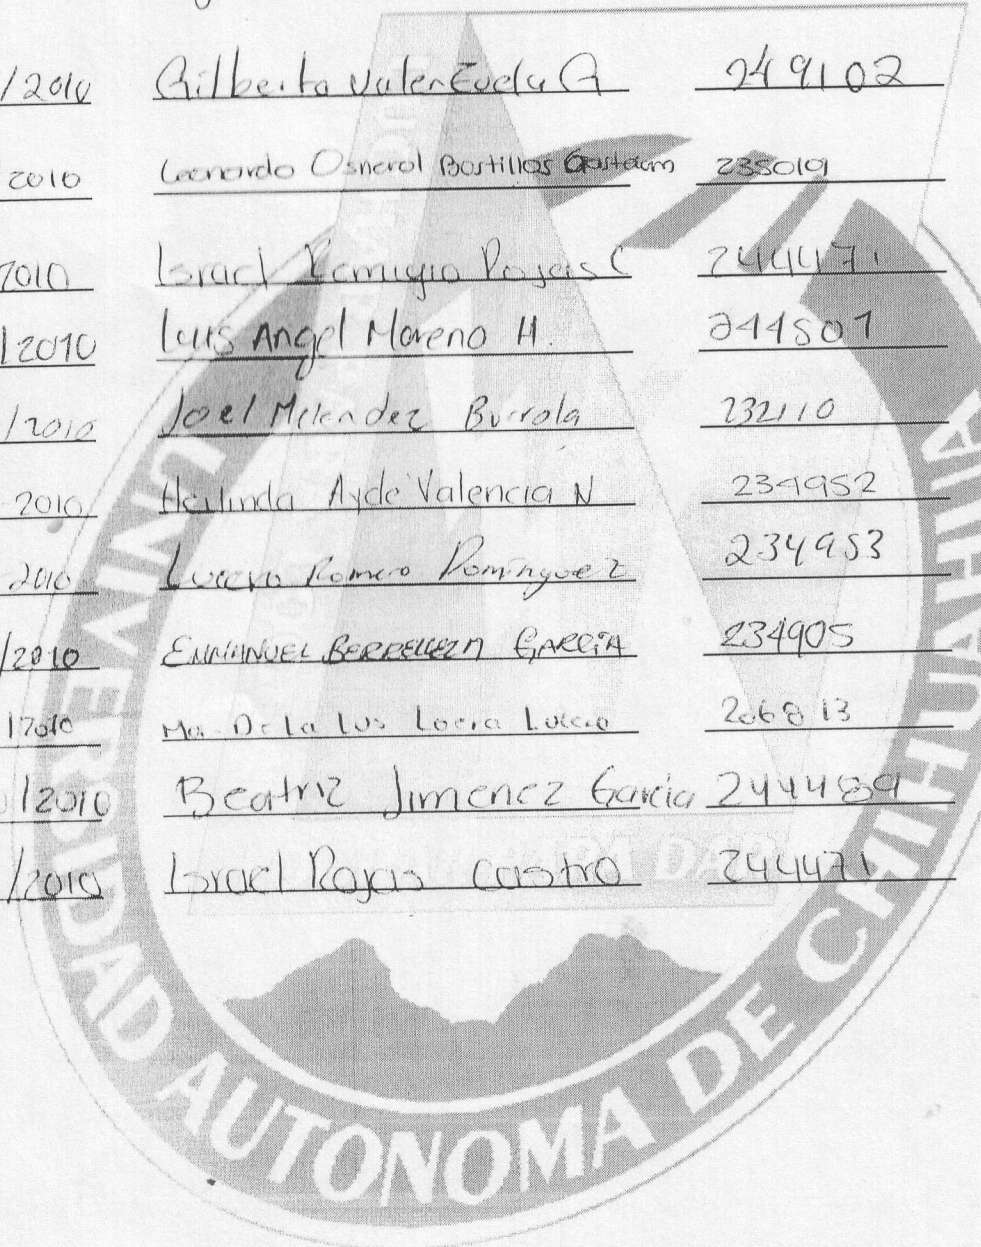 /2010 Gilberto ValenZuela G 249102
2010 Leonardo Osnerol Bastillos Gastelum 235019
2010 Israel Remigio Rojas C 244471
/2010 Luis Angel Moreno H. 244507
/2010 Joel Melendez Burrola 232110
2010 Herlinda Ayde Valencia N 234952
2010 Lucero Romero Domínguez 234953
/2010 EMMANUEL BERRELLEZA GARCÍA 234905
/2010 Ma. De la Luz Loera Lucero 206813
/2010 Beatriz Jimenez Garcia 244489
/2010 Israel Rojas Castro 244471
UNIVERSIDAD AUTONOMA DE CHIHUAHUA